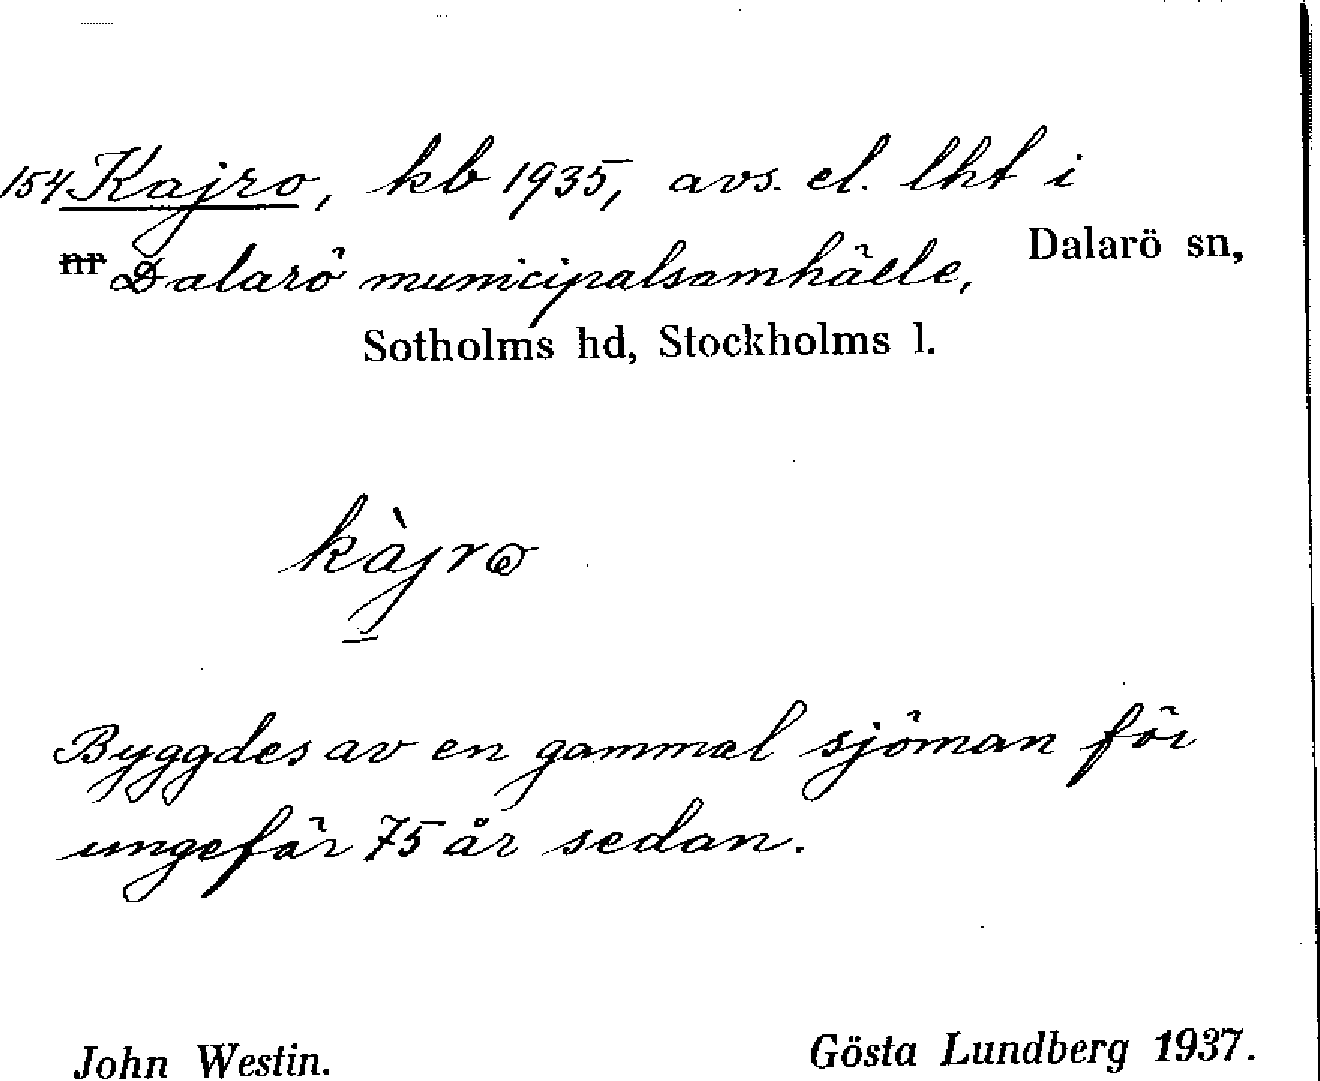 154 Kajro, kb 1935, avs. el. lht i
nr Dalarö municipalsamhälle, Dalarö sn,
Sotholms hd, Stockholms l.
kàjro
Byggdes av en gammal sjöman för
ungefär 75 år sedan.
John Westin. Gösta Lundberg 1937.